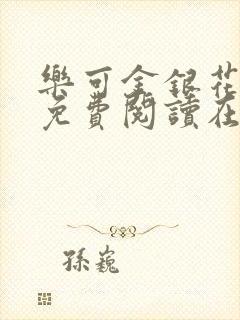 樂可金銀花
免費閱讀在
孫巍